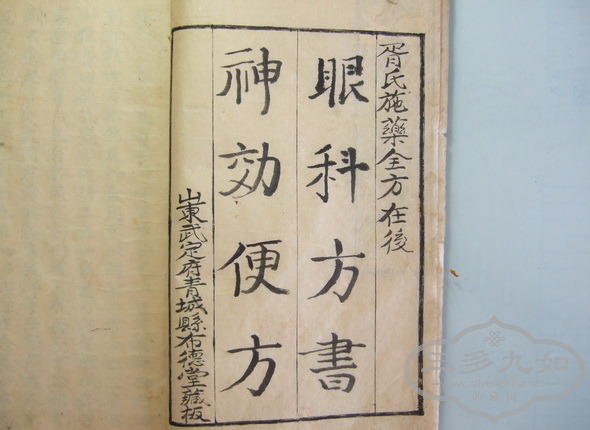 胥氏施藥全方在後
眼科方書
神効便方
山東武定府青城縣布德堂藏板